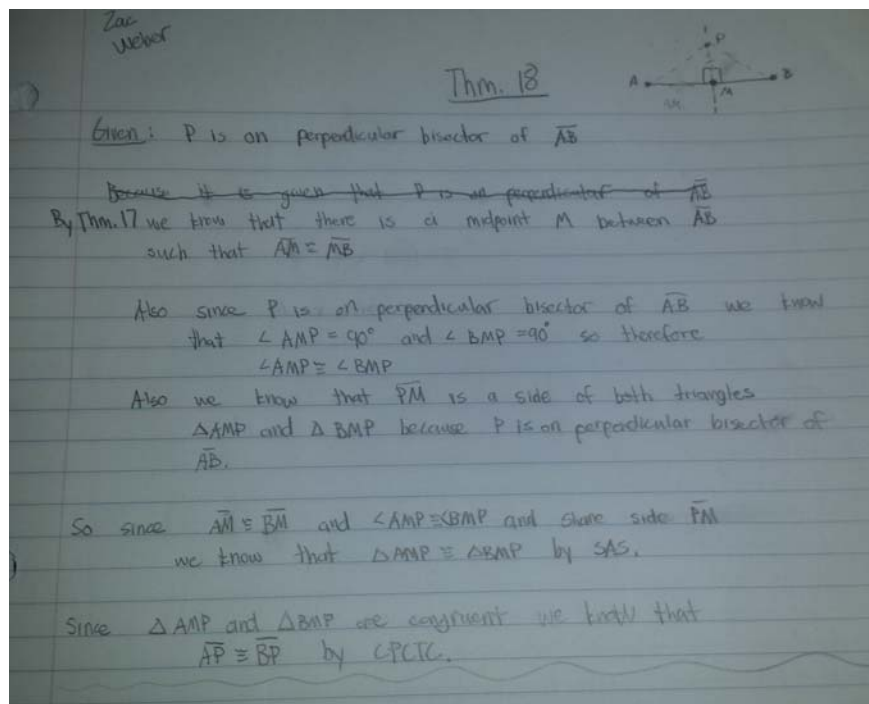 Zac
Weber
Thm. 18
P
A
B
M
Given: P is on perpendicular bisector of AB
Because it is given that P is on perpendicular of AB
By Thm. 17 we know that there is a midpoint M between AB
such that AM ≅ MB
Also since P is on perpendicular bisector of AB we know
that ∠AMP = 90° and ∠BMP = 90° so therefore
∠AMP ≅ ∠BMP
Also we know that PM is a side of both triangles
△AMP and △BMP because P is on perpendicular bisector of
AB.
So since AM ≅ BM and ∠AMP ≅ ∠BMP and share side PM
we know that △AMP ≅ △BMP by SAS.
Since △AMP and △BMP are congruent we know that
AP ≅ BP by CPCTC.